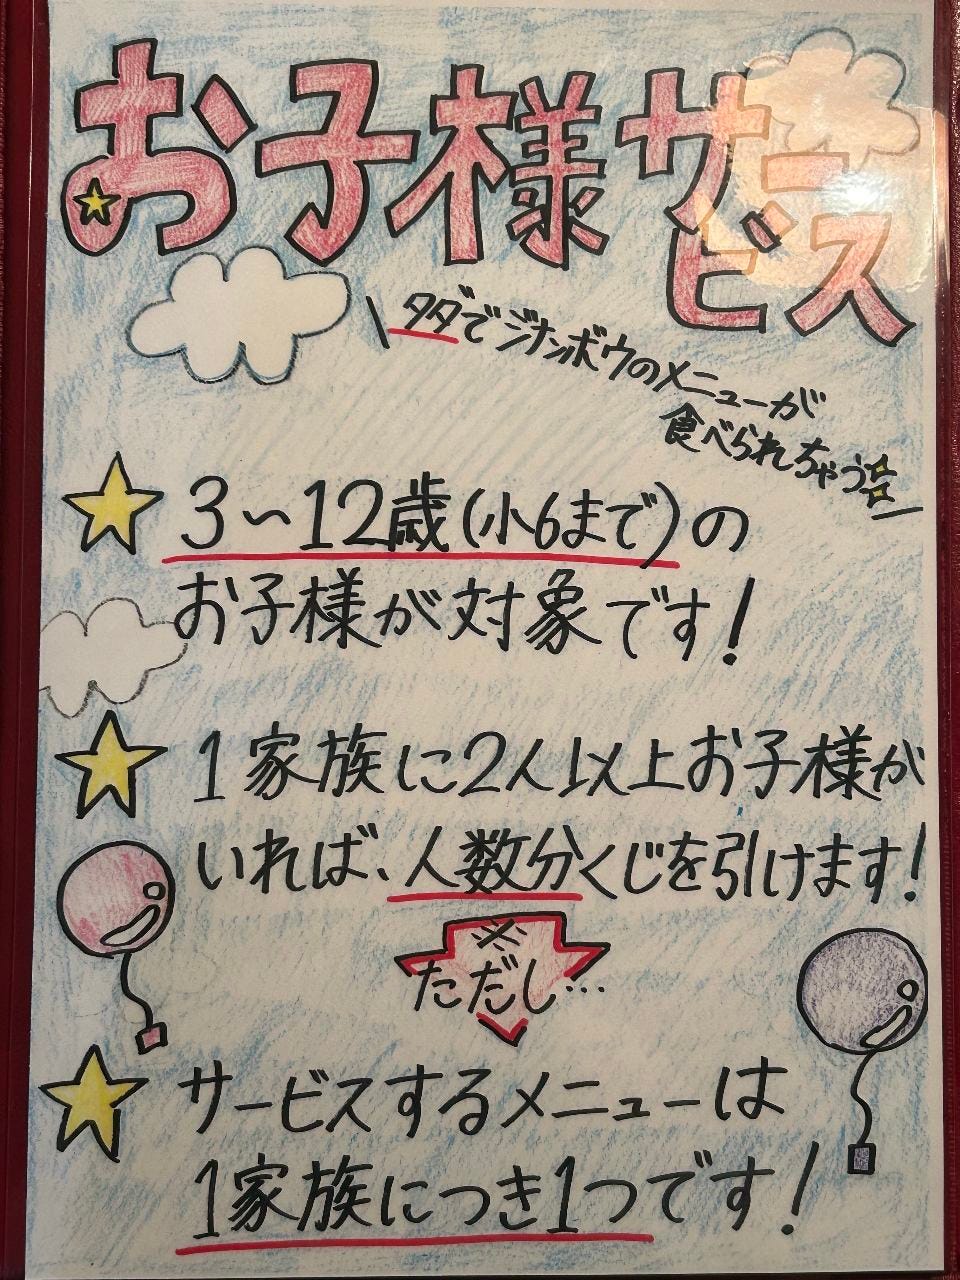 お子様サービス
タダでジナンボウのメニューが
食べられちゃう
3～12歳(小6まで)の
お子様が対象です!
1家族に2人以上お子様が
いれば、人数分くじを引けます!
※
ただし…
サービスするメニューは
1家族につき1つです!